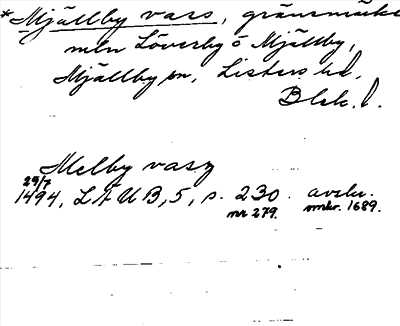 *Mjällby vass, gränsmärke
mln Löverby o Mjällby,
Mjällby sn, Listers hd,
Blek. l.
Melby vasz
29/7
1494, LÄUB, 5, s. 230. avskr.
nr 279. omkr. 1689.